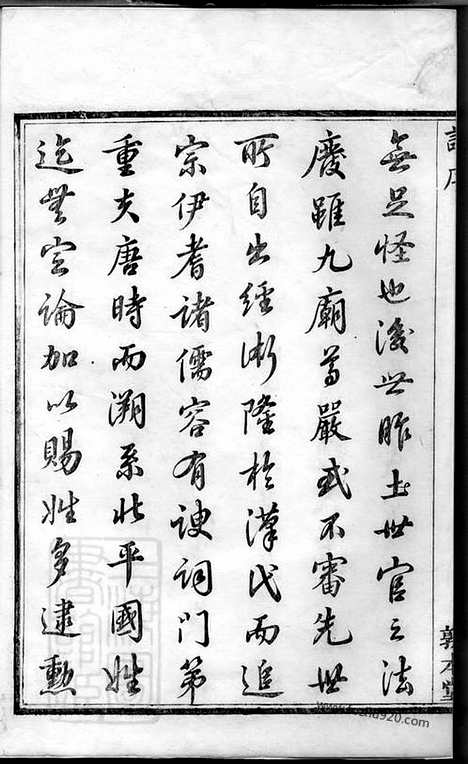 譜序
敦本堂
無足怪也後世胙土世官之法
廢雖九廟尊嚴或不審先世
所自出經術隆於漢代而追
宗伊耆諸儒容有諛詞門第
重夫唐時而溯系北平國姓
迄無定論加以賜姓多逮勳